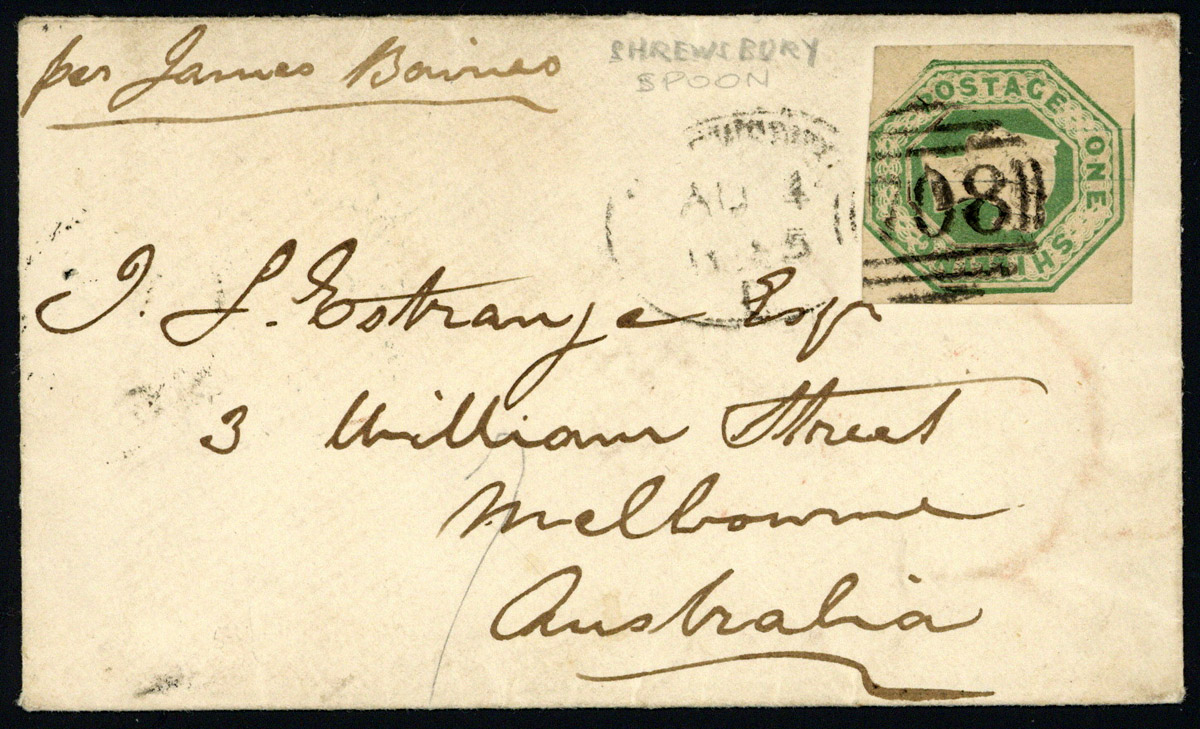 per James Baines
SHREWSBURY
SPOON
POSTAGE ONE SHILLING
AU 4
5
708
J. L. Estrange Esqr
3 William Street
Melbourne
Australia